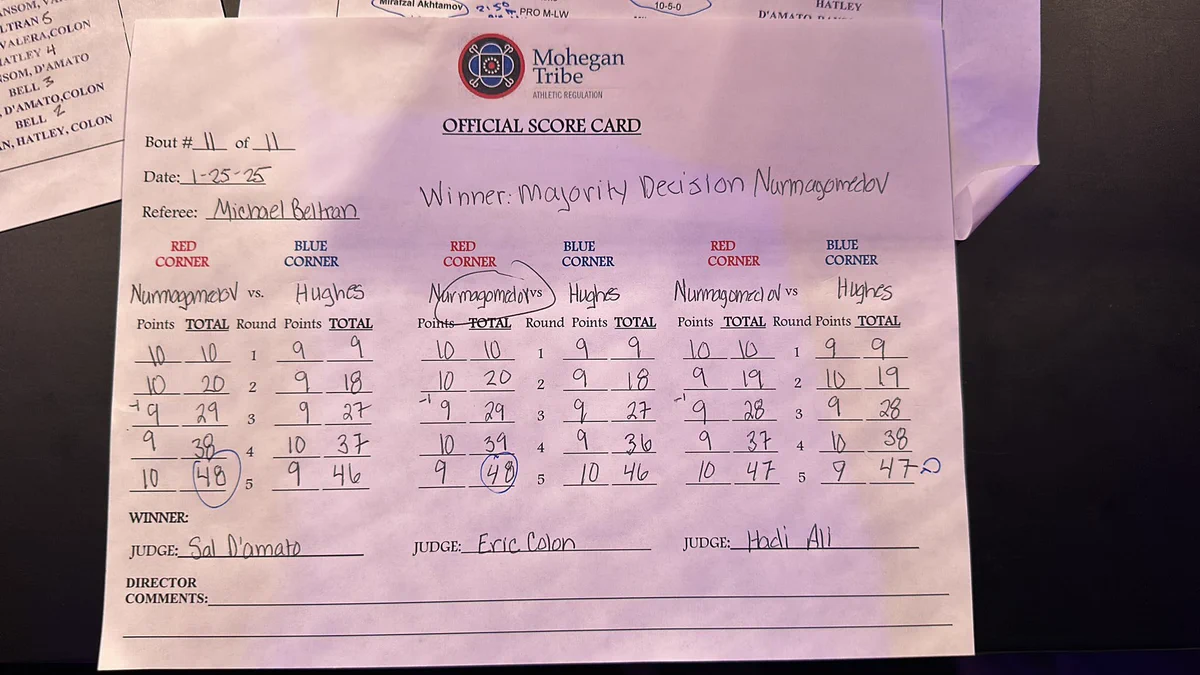 LTRAN 5
VALERA,COLON
HATLEY 4
SOM, D'AMATO
BELL 3
, D'AMATO,COLON
BELL 2
N, HATLEY, COLON
Mirafzal Akhtamov
2:50
PRO M-LW
10-5-0
HATLEY
Mohegan
Tribe
ATHLETIC REGULATION
OFFICIAL SCORE CARD
Bout # 11 of 11
Date: 1-25-25
Referee: Michael Beltran
Winner: Majority Decision Nurmagomedov
RED CORNER BLUE CORNER RED CORNER BLUE CORNER RED CORNER BLUE CORNER
Nurmagomedov vs. Hughes Nurmagomedov vs Hughes Nurmagomedov vs Hughes
Points TOTAL Round Points TOTAL Points TOTAL Round Points TOTAL Points TOTAL Round Points TOTAL
10 10 1 9 9 10 10 1 9 9 10 10 1 9 9
10 20 2 9 18 10 20 2 9 18 9 19 2 10 19
-1 9 29 3 9 27 -1 9 29 3 9 27 -1 9 28 3 9 28
9 38 4 10 37 10 39 4 9 36 9 37 4 10 38
10 48 5 9 46 9 48 5 10 46 10 47 5 9 47
WINNER:
JUDGE: Sal D'amato JUDGE: Eric Colon JUDGE: Hadi Ali
DIRECTOR
COMMENTS: